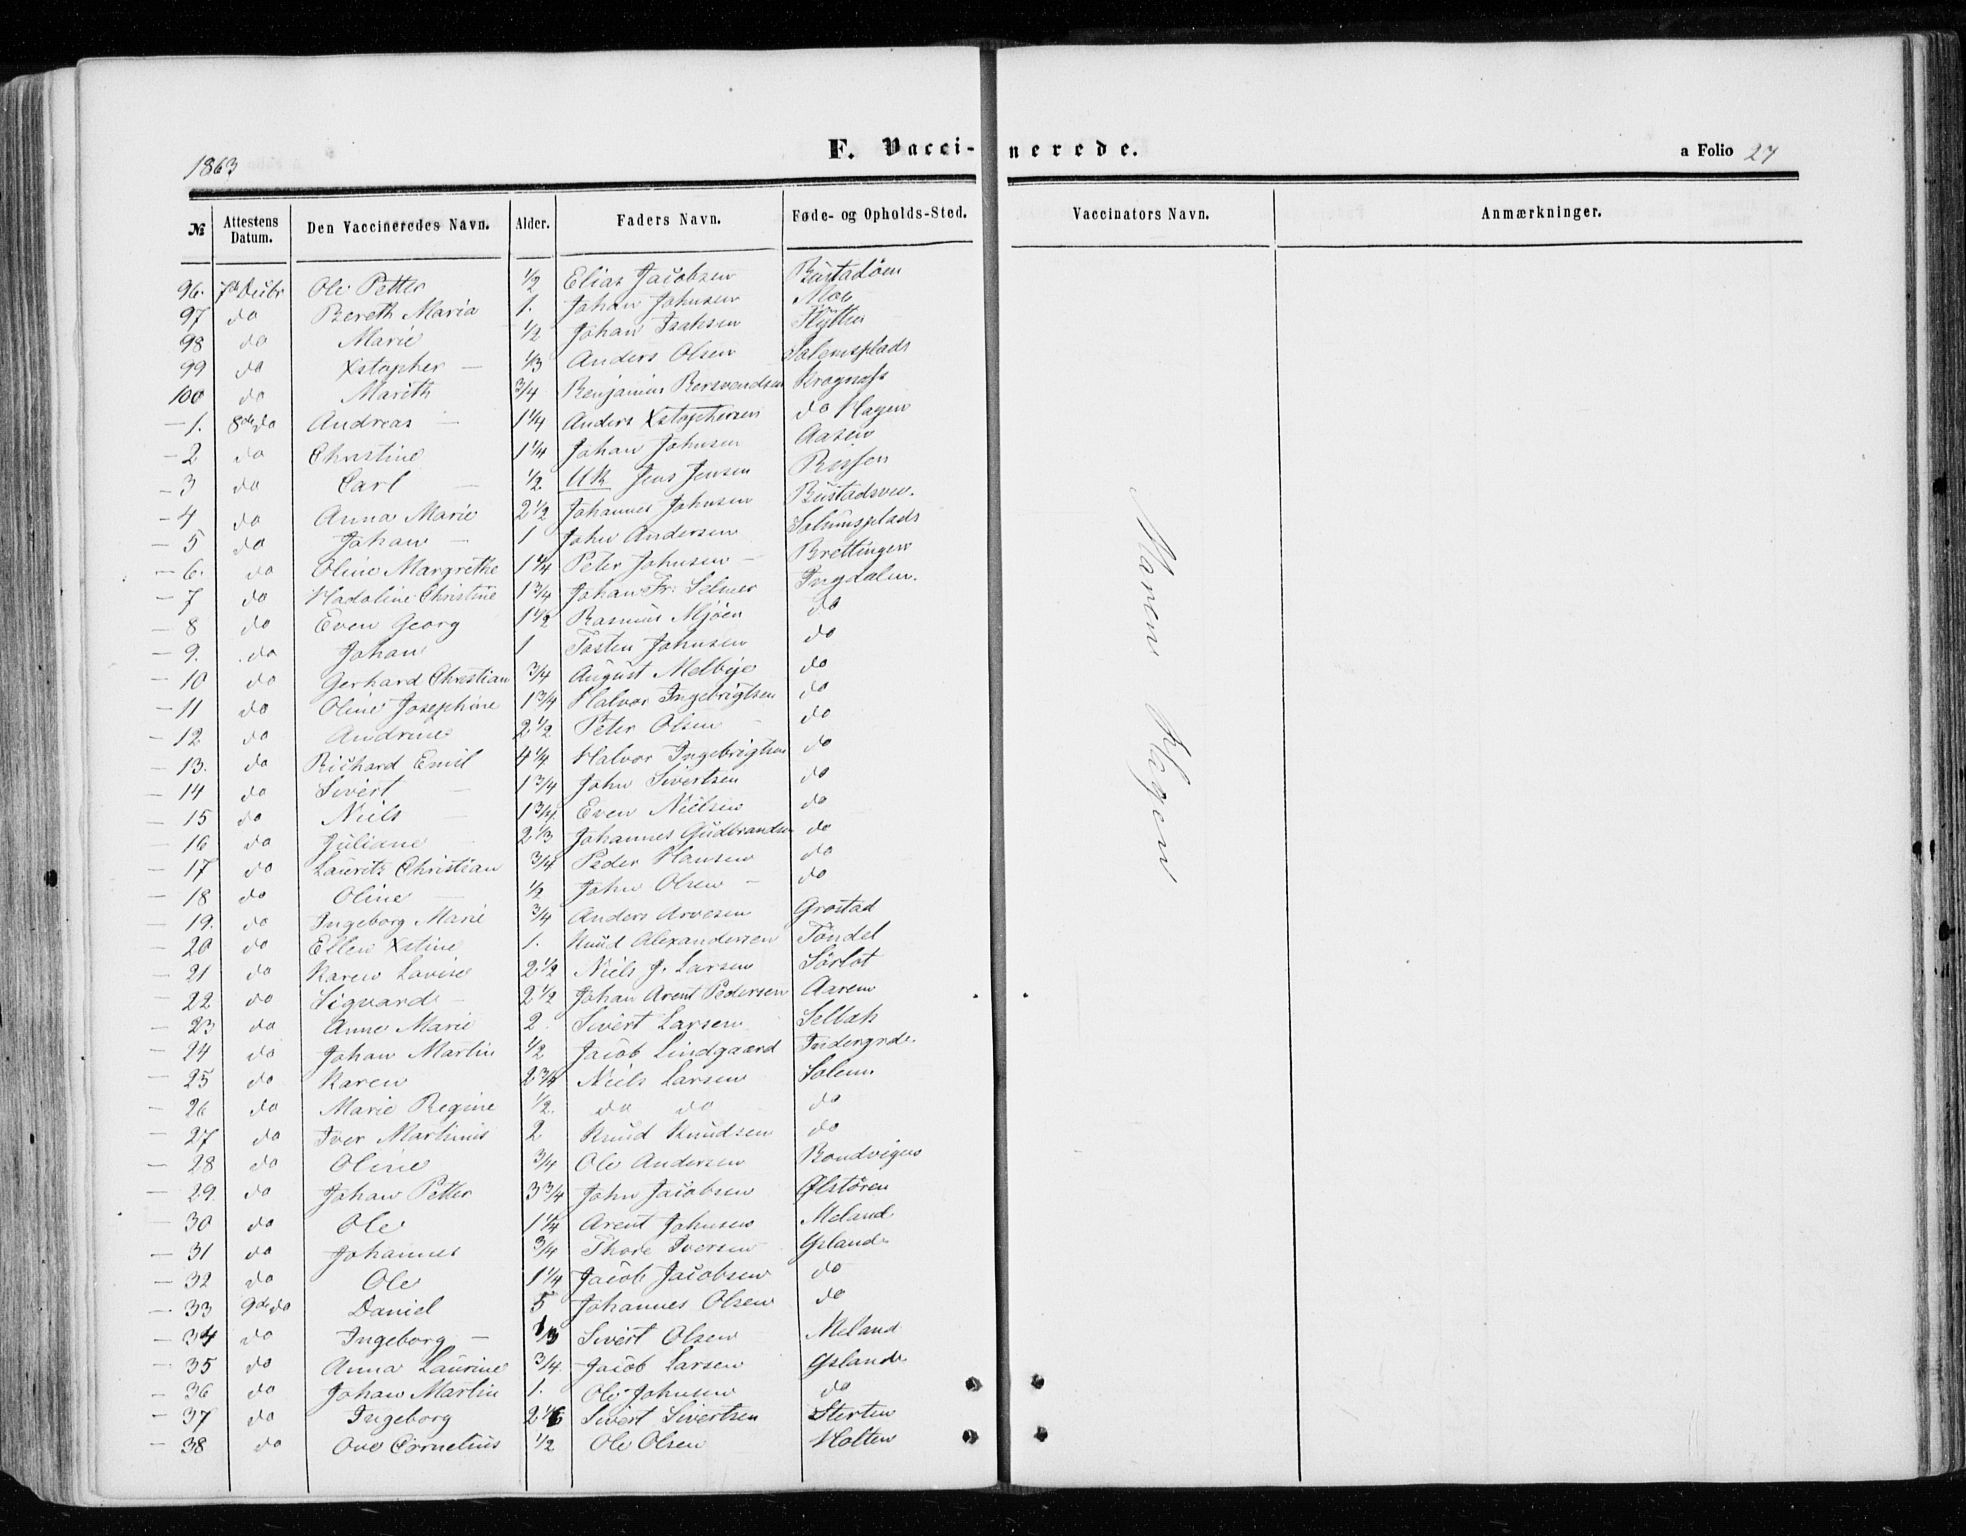 1863
F. Vaccinerede.
a Folio 27
№ Attestens Datum. Den Vaccineredes Navn. Alder. Faders Navn. Føde- og Opholds-Sted. Vaccinators Navn. Anmærkninger.
96. 7de Ole Petter 1/2 Elias Jacobsen Bustadöen
97 do Bereth Maria 1. Johan Johnsen Moe
98 do Marie 1/2 Johan Isahsen
99 do Xstopher – 1/3 Anders Olsen Solemsplads
100 do Marith 3/4 Benjamin
– 1. 8de do Andreas – 1 1/4 Anders Xstophersen do Hagen
– 2 do Christine 1 1/4 Johan Johnsen Aasen
– 3 do Carl – 1/2 Jens Jensen
– 4 do Anna Marie 2 1/2 Johannes Johnsen
– 5 do Johan – 1 John Andersen Solumsplads
– 6. do Oline Margrethe 1 1/4 Peter Johnsen – Brettingen
– 7 do Hadoline Christine 1 3/4 Johan Fr. Selmer Ingdalen.
– 8 do Even Georg 1 1/2 Rasmus Mjöen do
– 9. do Johan 1 Tosten Johnsen do
– 10 do Gerhard Christian 3/4 August Melbye do
– 11 do Oline Josephine 1 3/4 Halvor Ingebrigtsen do
– 12 do Andrine 2 1/2 Peter Olsen – do
– 13. do Richard Emil 4 1/4 Halvor Ingebrigtsen do
– 14 do Sivert – 1 3/4 John Sivertsen do
– 15 do Niels – 1 3/4 Even Nielsen do
– 16 do Juliane 2 1/3 Johannes Gudbrandsen do
– 17 do Lauritz Christian 3/4 Peder Hansen do
– 18 do Oline – 1/2 John Olsen – do
– 19. do Ingeborg Marie 3/4 Anders Arvesen Grostad
– 20 do Ellen Xstine 1. Knud Alexandersen Töndel
– 21 do Karen Lovise 2 1/2 Niels J. Larsen Sörlöt
– 22 do Sigvard – 2 1/2 Johan Arent Pedersen Aarem
– 23 do Anne Marie 2. Sivert Larsen Selbek
– 24 do Johan Martin 1/2 Jacob Lindgaard
– 25 do Karen 2 3/4 Niels Larsen Solem
– 26 do Marie Regine 1/2. do do do
– 27 do Iver Martinus 2 Knud Knudsen do
– 28 do Oline 3/4 Ole Andersen
– 29. do Johan Petter 3 3/4 John Jacobsen Ølstören
– 30 do Ole 1 1/4 Arent Johnsen Meland
– 31 do Johannes 3/4 Thore Iversen
– 32 do Ole 1 1/4 Jacob Jacobsen do
– 33 9de do Daniel 5 Johannes Olsen do
– 34 do Ingeborg – 1/3 Sivert Olsen Meland
– 35 do Anna Laurine 3/4 Jacob Larsen
– 36 do Johan Martin 1. Ole Johnsen do
– 37 do Ingeborg 2 1/6 Sivert Sivertsen Sterten
– 38 do Ove Cornelius 1/2 Ole Olsen Holten
Maren Hagen